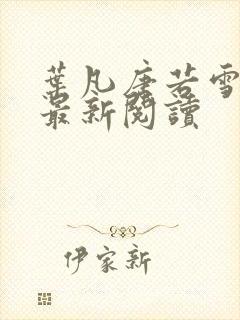 葉凡唐若雪
最新閱讀
伊家新